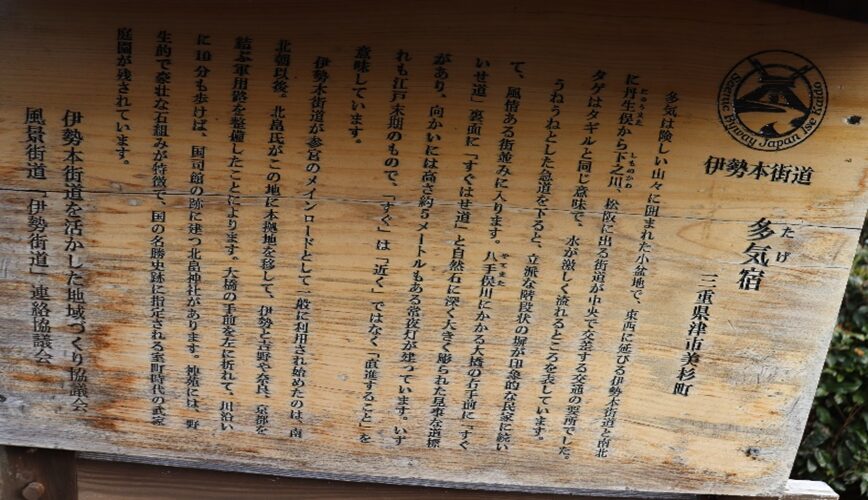 Scenic Byway Japan Ise Kaido
伊勢本街道
たげ
多気宿
三重県津市美杉町
多気は険しい山々に囲まれた小盆地で、東西に延びる伊勢本街道と南北
に丹生俣から下之川、松阪に出る街道が中央で交差する交通の要所でした。
タゲはタギルと同じ意味で、水が激しく流れるところを表しています。
うねうねとした急道を下ると、立派な階段状の塀が印象的な民家に続い
て、風情ある街並みに入ります。八手俣川にかかる大橋の右手前に「すぐ
いせ道」裏面に「すぐはせ道」と自然石に深く大きく彫られた見事な道標
があり、向かいには高さ約5メートルもある常夜灯が建っています。いず
れも江戸末期のもので、「すぐ」は「近く」ではなく「直進すること」を
意味しています。
伊勢本街道が参宮のメインロードとして一般に利用され始めたのは、南
北朝以後、北畠氏がこの地に本拠地を移して、伊勢と吉野や奈良、京都を
結ぶ軍用路を整備したことによります。大橋の手前を左に折れて、川沿い
に10分も歩けば、国司館の跡に建つ北畠神社があります。神苑には、野
生的で豪壮な石組みが特徴で、国の名勝史跡に指定される室町時代の武家
庭園が残されています。
伊勢本街道を活かした地域づくり協議会
風景街道「伊勢街道」連絡協議会